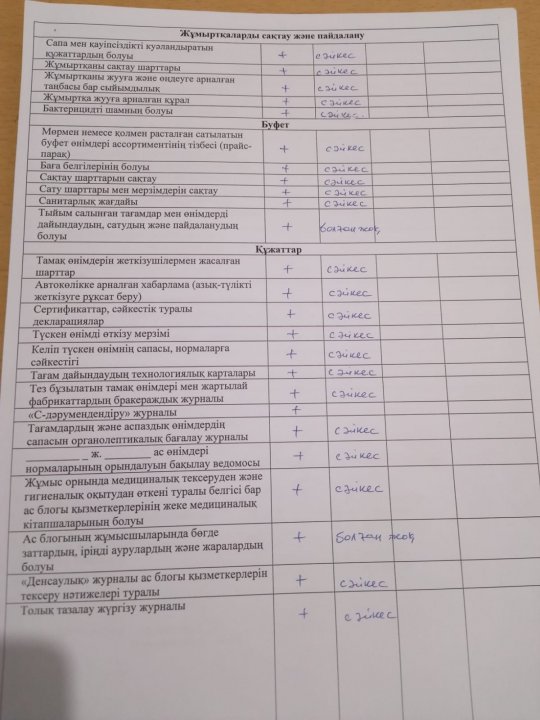 Жұмыртқаларды сақтау және пайдалану
Сапа мен қауіпсіздікті куәландыратын
құжаттардың болуы + сәйкес
Жұмыртқаны сақтау шарттары + сәйкес
Жұмыртқаны жууға және өңдеуге арналған
таңбасы бар сыйымдылық + сәйкес
Жұмыртқа жууға арналған құрал + сәйкес
Бактерицидті шамның болуы + сәйкес.
Буфет
Мөрмен немесе қолмен расталған сатылатын
буфет өнімдері ассортиментінің тізбесі (прайс-
парақ) + сәйкес
Баға белгілерінің болуы + сәйкес
Сақтау шарттарын сақтау + сәйкес
Сату шарттары мен мерзімдерін сақтау + сәйкес
Санитарлық жағдайы + сәйкес
Тыйым салынған тағамдар мен өнімдерді
дайындаудың, сатудың және пайдаланудың
болуы + болған жоқ
Құжаттар
Тамақ өнімдерін жеткізушілермен жасалған
шарттар + сәйкес
Автокөлікке арналған хабарлама (азық-түлікті
жеткізуге рұқсат беру) + сәйкес
Сертификаттар, сәйкестік туралы
декларациялар + сәйкес
Түскен өнімді өткізу мерзімі + сәйкес
Келіп түскен өнімнің сапасы, нормаларға
сәйкестігі + сәйкес
Тағам дайындаудың технологиялық карталары + сәйкес
Тез бұзылатын тамақ өнімдері мен жартылай
фабрикаттардың бракераждық журналы + сәйкес
«С-дәрумендендіру» журналы +
Тағамдардың және аспаздық өнімдердің
сапасын органолептикалық бағалау журналы + сәйкес
_________ _ ж. ________ ас өнімдері
нормаларының орындалуын бақылау ведомосы + сәйкес
Жұмыс орнында медициналық тексеруден және
гигиеналық оқытудан өткені туралы белгісі бар
ас блогы қызметкерлерінің жеке медициналық
кітапшаларының болуы + сәйкес
Ас блогының жұмысшыларында бөгде
заттардың, іріңді аурулардың және жаралардың
болуы + болған жоқ
«Денсаулық» журналы ас блогы қызметкерлерін
тексеру нәтижелері туралы + сәйкес
Толық тазалау жүргізу журналы + сәйкес